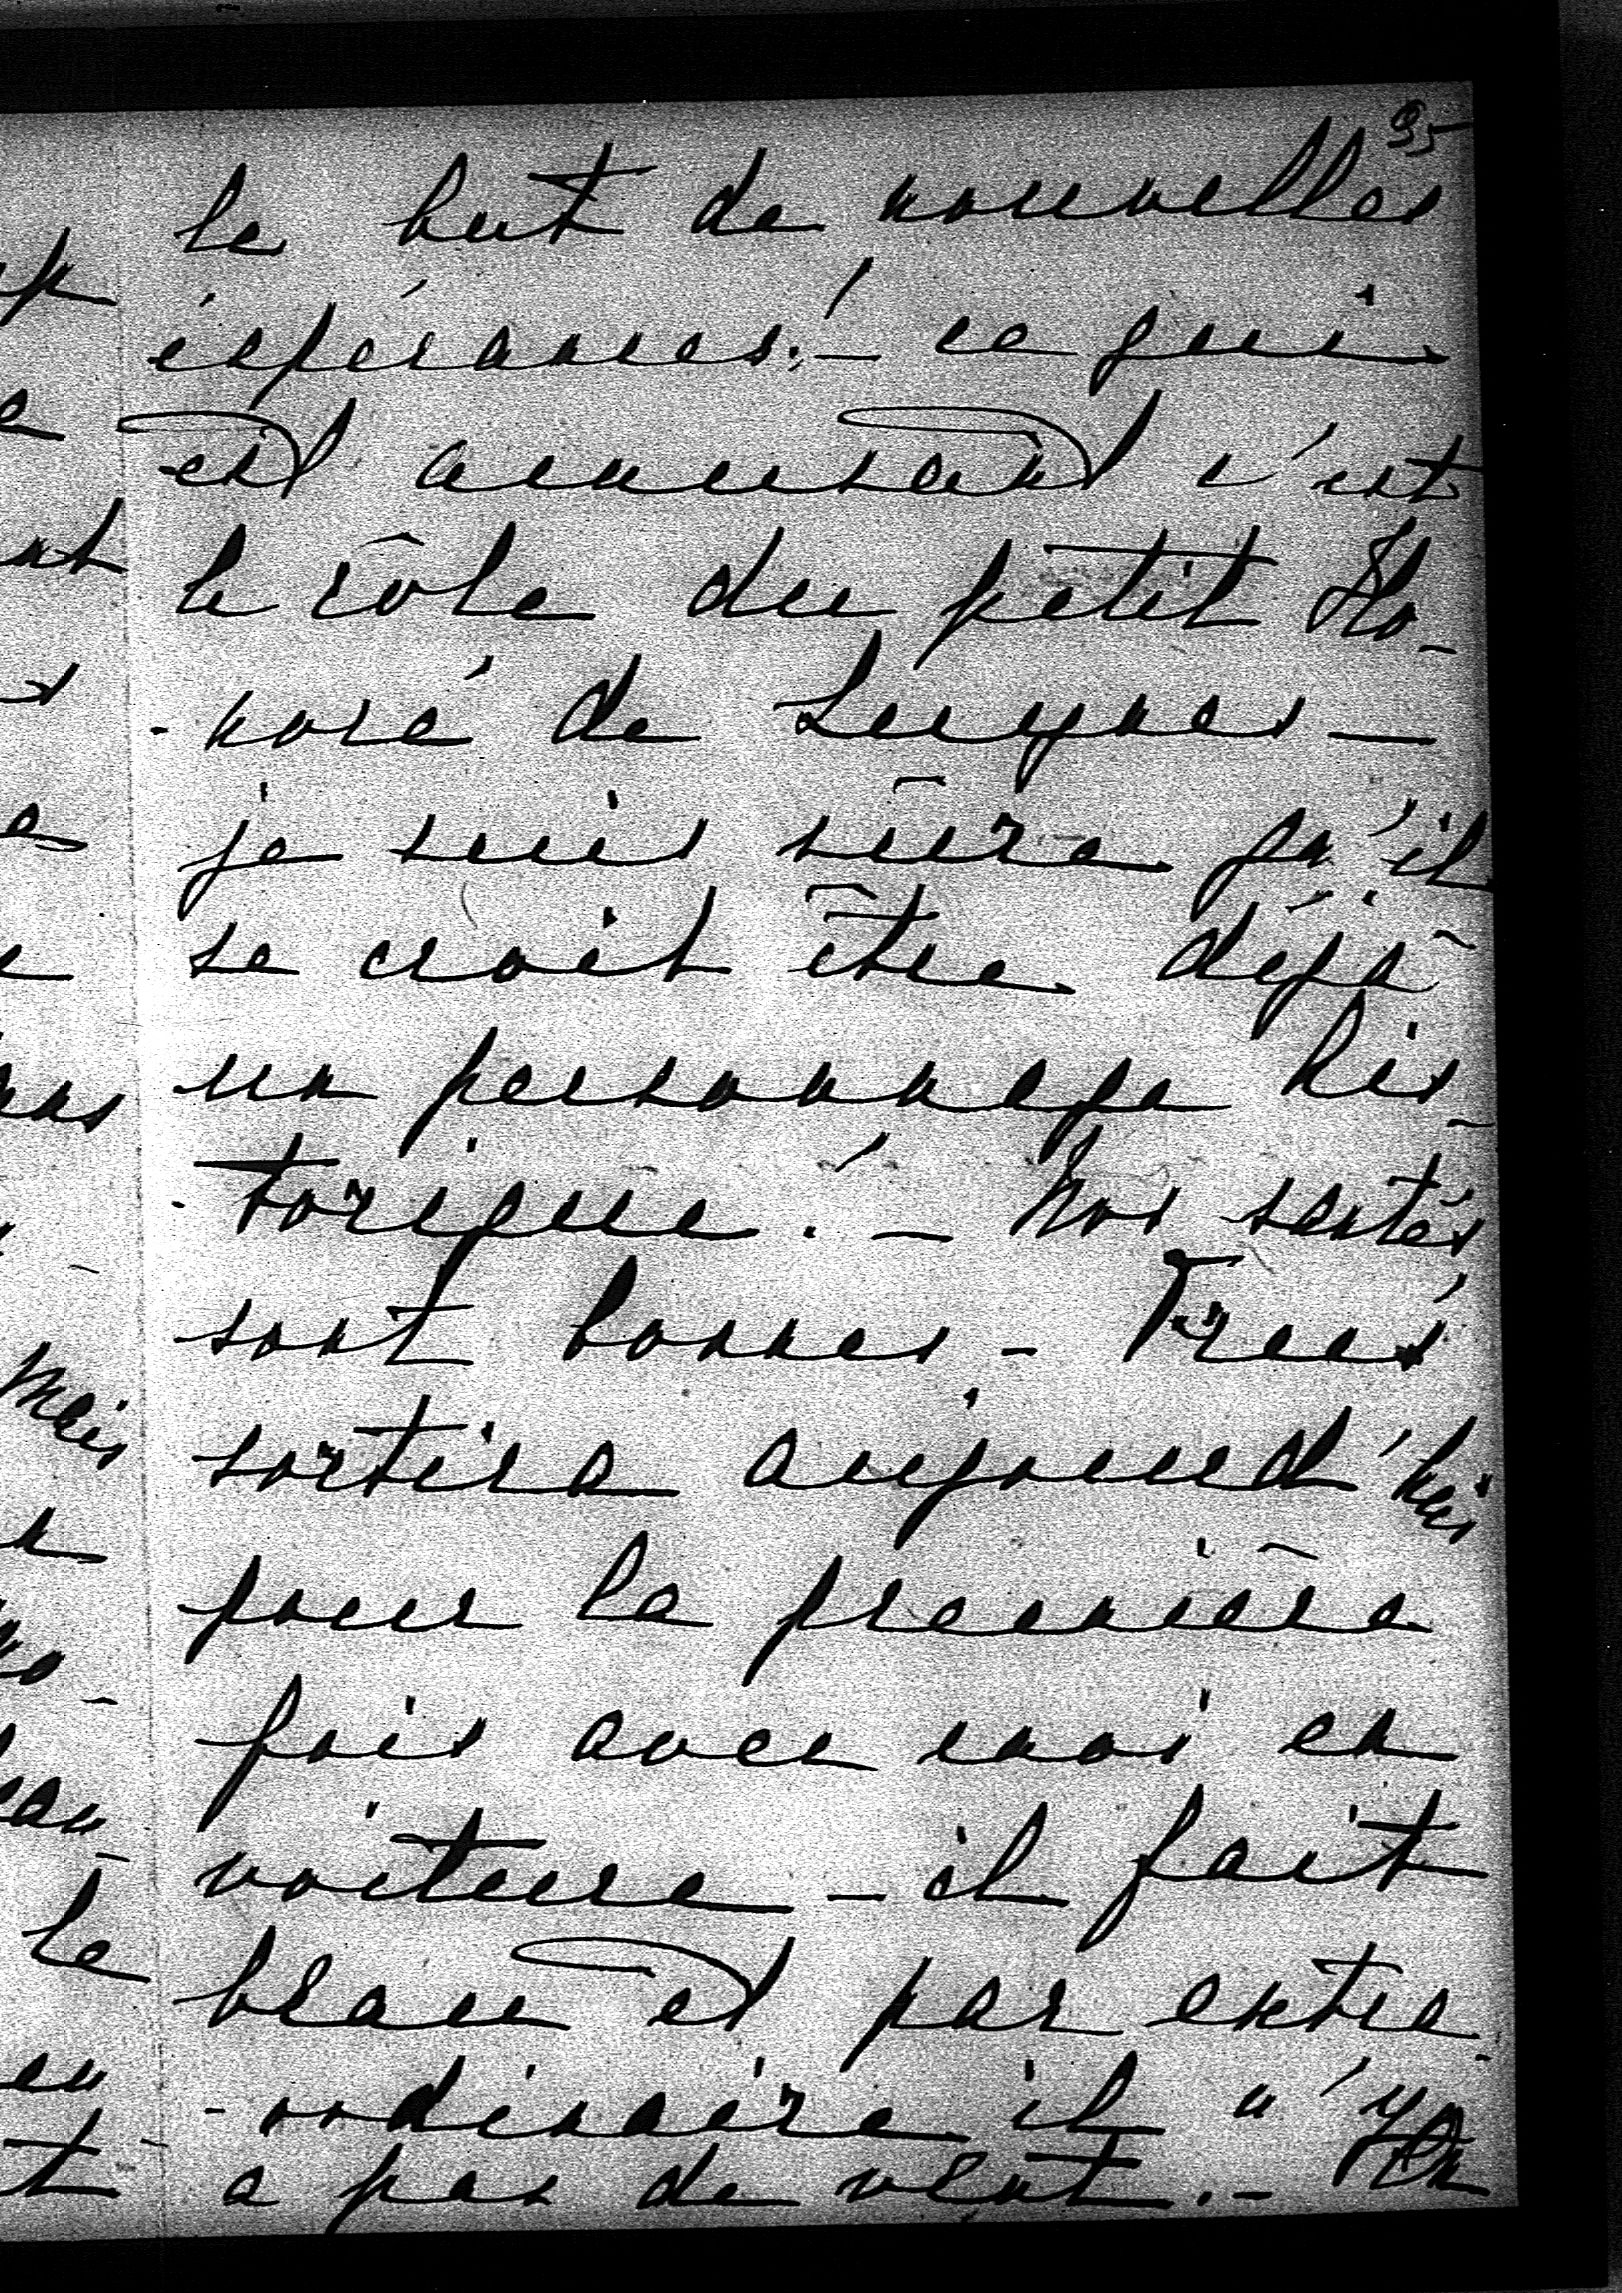 95
le but de nouvelles
éspérances! — ce qui
est amusant c'est
le rôle du petit Ho-
-noré de Luynes —
je suis sûre qu'il
se croit être déjà
un personnage his-
-torique! — Nos santés
sont bonnes —
sortira aujourd'hui
pour la première
fois avec moi en
voiture — il fait
beau et par extra-
-ordinaire il n'y
a pas de vent. — On